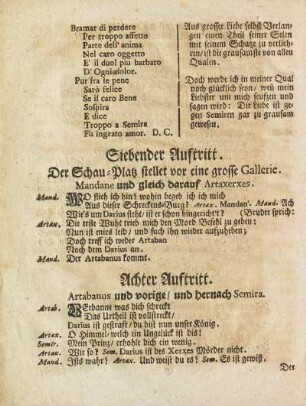 Bramar di perdere
Per troppo affetto
Parte dell' anima
Nel caro oggetto
E il duol piu barbaro
D' Ogn'altolor.
Pur fra le pene
Sarò felice
Se il caro Bene
Sospira
E dice
Troppo a Semira
Fù ingrato amor. D. C.
Aus grosser Liebe selbst Verlan-
gen einen Theil seiner Selen
mit seinem Schatz zu verlieh-
ren/ ist die grausamste von allen
Qualen.
Doch werde ich in meiner Qual
noch glücklich seyn/ weñ mein
Liebster um mich seufzen und
sagen wird: Die Liebe ist ge-
gen Semiren gar zu grausam
gewesen.
Siebender Auftritt.
Der Schau-Platz stellet vor eine grosse Gallerie.
Mandane und gleich darauf Artaxerxes.
Mand. WO flieh ich hin? wohin begeb ich ich mich
Aus dieser Schreckens-Burg? Artax. Mandan'. Mand. Ach
Wie's um Darius steht/ ist er schon hingericht? (Bruder sprich:
Artax. Die erste Wuhe trieb mich den Mord Befehl zu geben:
Nun ist mirs leid/ und such ihn wieder aufzuheben;
Doch treff ich weder Artaban
Noch dem Darius an.
Mand. Der Artabanus kommt.
Achter Auftritt.
Artabanus und vorige/ und hernach Semira.
Artab. VErbannt was dich schreckt
Das Urtheil ist vollstreckt/
Darius ist gestraft/ du bist nun unser König.
Artax. O Himmel! welch ein Unglück ist diß!
Semir. Mein Prinz/ erhohle dich ein wenig.
Artax. Wie so? Sem. Darius ist des Xerxes Mörder nicht.
Mand. Ists wahr? Artax. Und weist du es? Sem. Es ist gewiß.
Der